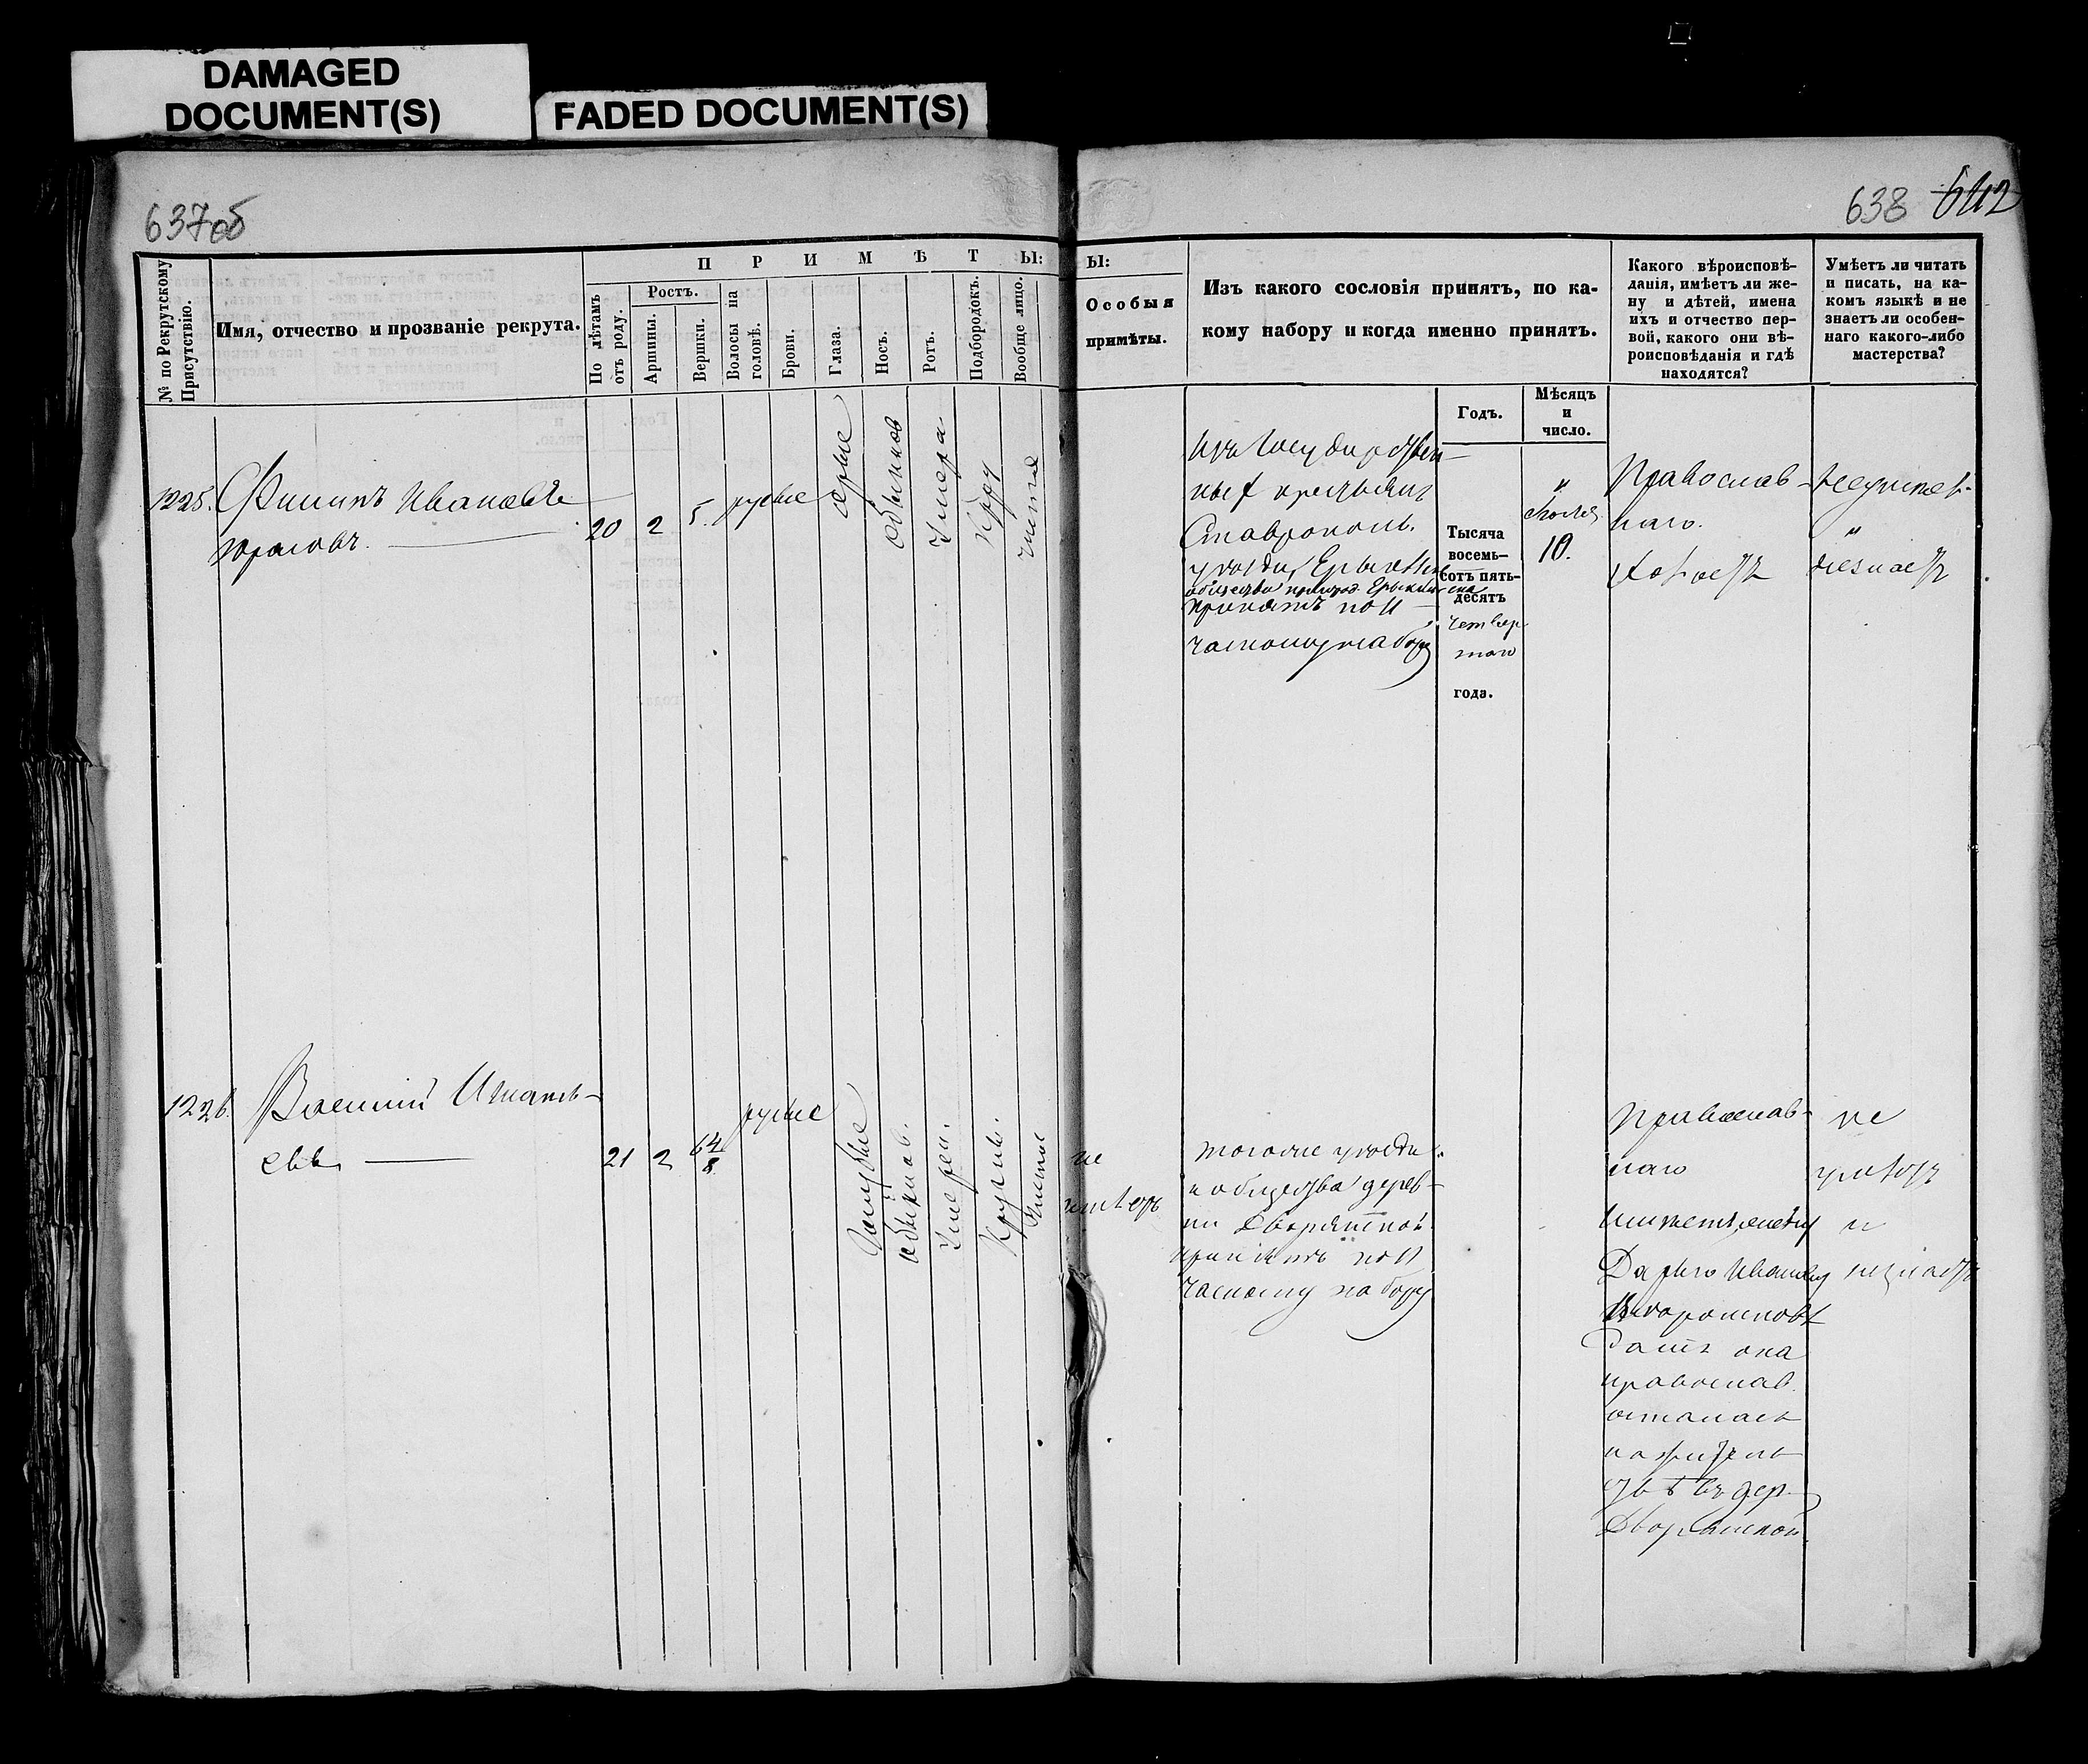 DAMAGED
DOCUMENT(S)
FADED DOCUMENT(S)
637об
638 642
№ по Рекрутскому
Присутствію.
Имя, отчество и прозваніе рекрута.
П Р И М Ѣ Т Ы:
По лѣтамъ
отъ роду.
Ростъ.
Аршины.
Вершки.
Волосы на
головѣ.
Брови.
Глаза.
Носъ.
Ротъ.
Подбородокъ.
Вообще лицо.
Ы:
Особыя
примѣты.
Изъ какого сословія принятъ, по ка-
кому набору и когда именно принятъ.
Какого вѣроисповѣ-
данія, имѣетъ ли же-
ну и дѣтей, имена
ихъ и отчество пер-
вой, какого они вѣ-
роисповѣданія и гдѣ
находятся?
Умѣетъ ли читать
и писать, на ка-
комъ языкѣ и не
знаетъ ли особен-
наго какого-либо
мастерства?
Годъ.
Мѣсяцъ
и
число.
1225.
Филипъ Ивановъ
20
2
5.
русые
серые
обыкнов
умера
кру
чистое
Изъ Государствен
ныхъ крестьянъ
Ставрополь.
уѣзда
общества
принятъ по 11
частному набору
Тысяча
восемь-
сотъ пять-
десятъ
четвер
таго
года.
10.
Православ-
наго.
холостъ
неумѣет
"
незнаетъ
1226.
Василій Игнать-
евъ
21
2
6 4/8
русые
голубые
обыкнов.
умерен.
кругл.
чистое
не
имѣетъ
тогоже уѣзда
и общества дерев-
ни Дворянской
принятъ по 11
частному набору
Православ-
наго
имѣетъ жену
Дарью Иванову
она
православ.
осталась
на житель
ствѣ въ дер.
Дворянской.
не
умѣетъ
и
незнаетъ